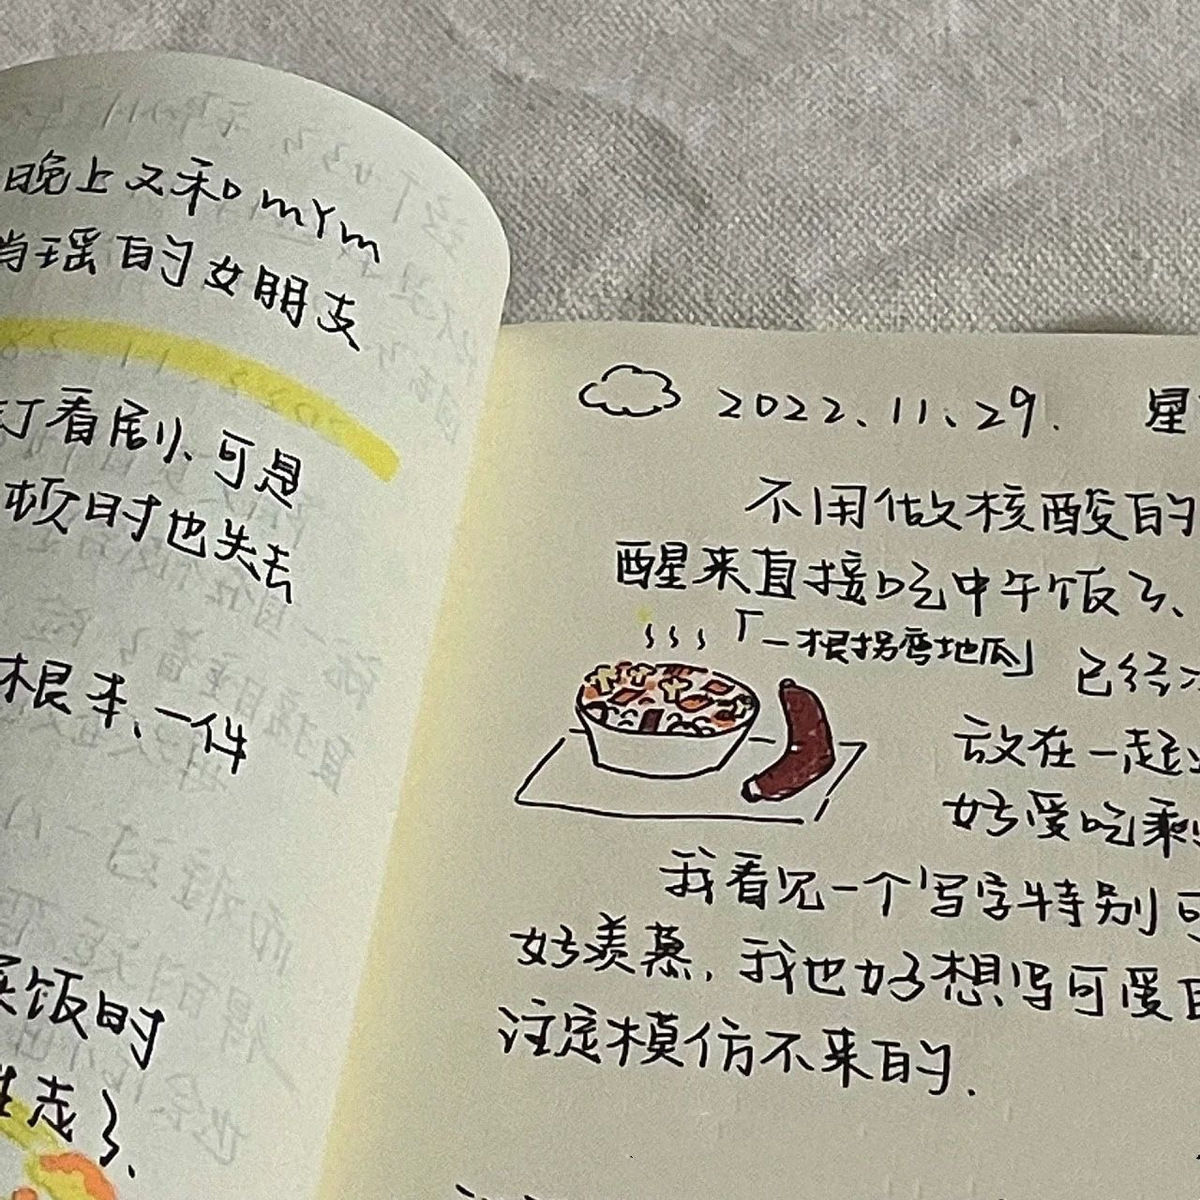 晚上又和mYm
肖瑶的女朋友
看剧、可是
顿时也失去
根本、一件
饭时
走了、
2022.11.29. 星
不用做核酸的
醒来直接吃中午饭了、
「一根拐弯地瓜」
已经
放在一起
好爱吃剩
我看见一个写字特别可
好羡慕,我也好想写可爱
注定模仿不来的.